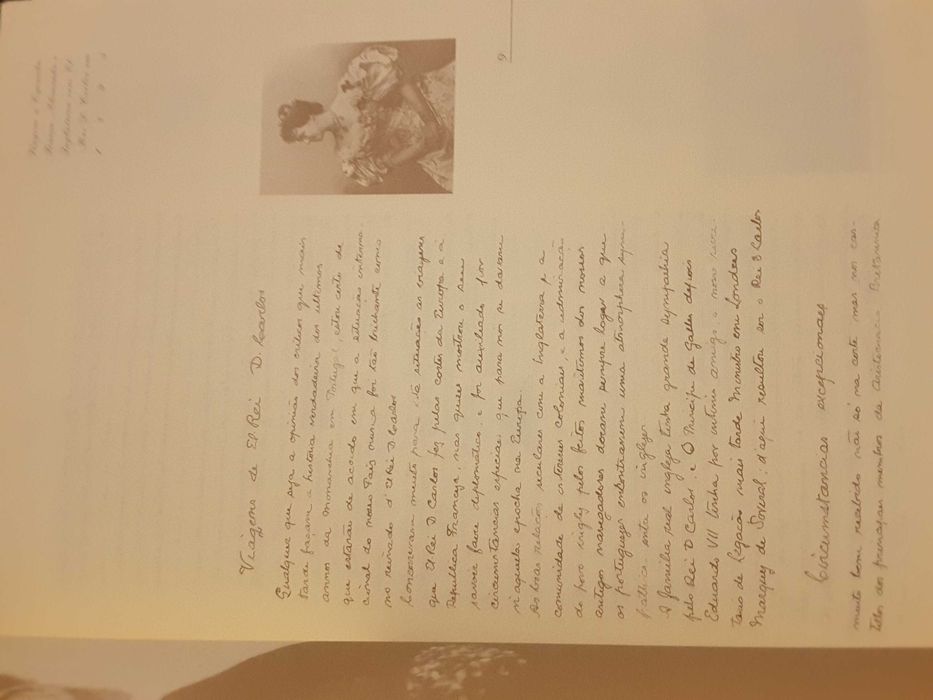 Viagens de El Rei D. Carlos
Qualquer que seja a opinião dos criticos que mais
tarde façam a historia verdadeira dos ultimos
annos da monarchia em Portugal, estou certo de
que estarão de acordo em que a situação interna-
cional do nosso Paiz nunca foi tão brilhante como
no reinado d'El Rei D Carlos
Concorreram muito para esta situação as viagens
que El Rei D Carlos fez pelas cortes da Europa e á
Republica Franceza, nas quaes mostrou o seu
savoir faire diplomatico e foi auxiliado por
circumstancias especiaes que para nós se davam
n'aquela epocha na Europa.
As boas relações seculares com a Inglaterra, a
comunidade de interesses coloniaes e a admiração
do povo inglez pelos feitos maritimos dos nossos
antigos navegadores deram sempre logar a que
os portuguezes encontrassem uma atmosphera sym-
pathica entre os inglezes
A familia real ingleza tinha grande sympathia
pelo Rei D Carlos e O Principe de Galles depois
Eduardo VII tinha por intimo amigo o nosso
de Legação mais tarde Ministro em Londres
Marquez de Soveral; d'aqui resultou ser o Rei D Carlos
Circumstancias excepcionaes
muito bem recebido não só na corte mas nos cas-
telos dos principaes membros da Aristocracia Britanica
9